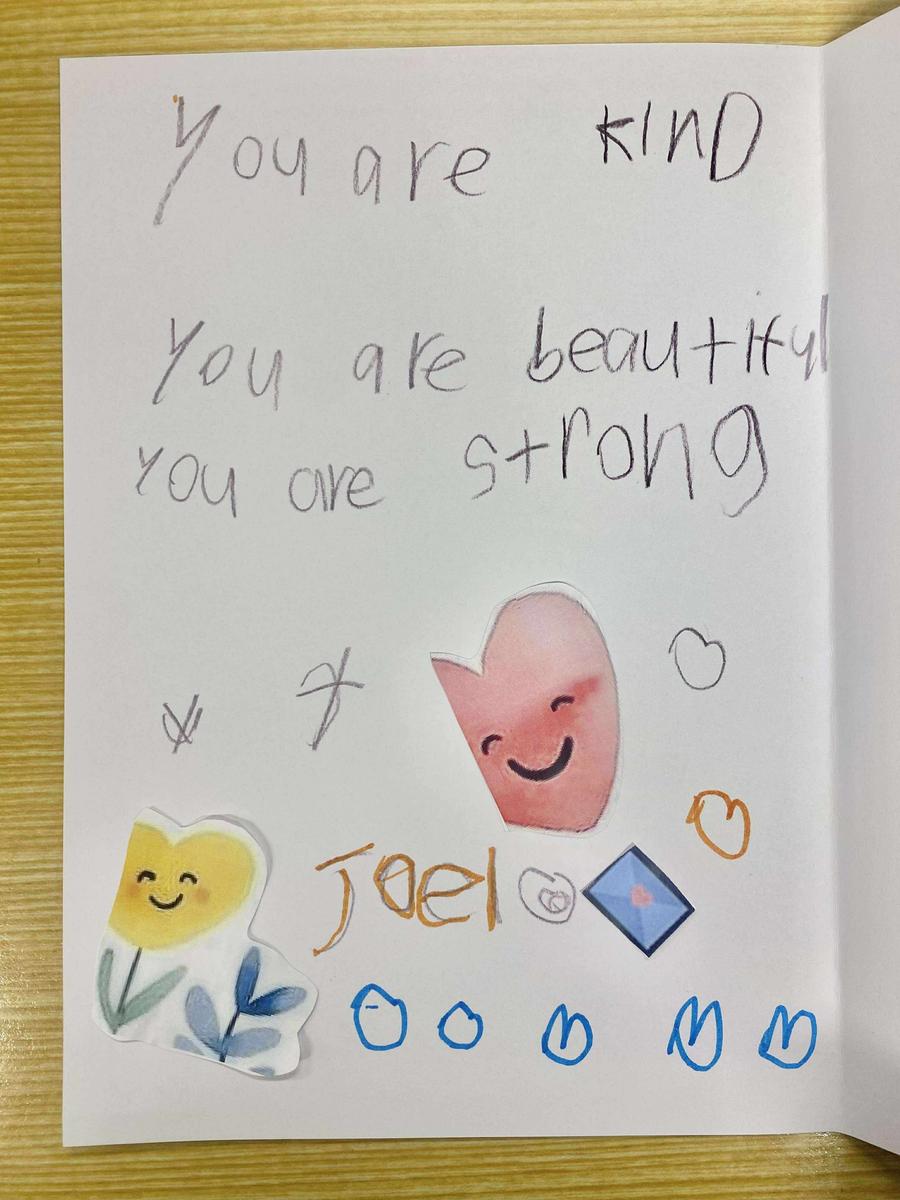 You are KInD
You are beautiful
You are strong
Joel